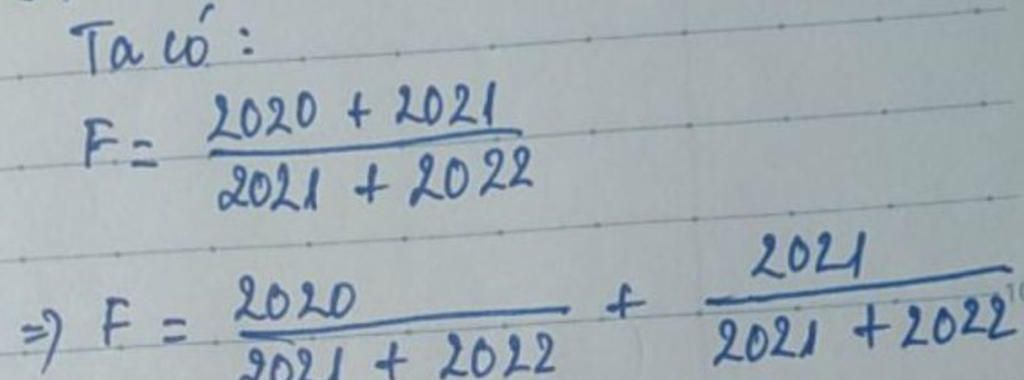 Ta có:
F = \frac{2020 + 2021}{2021 + 2022}
=> F = \frac{2020}{2021 + 2022} + \frac{2021}{2021 + 2022}